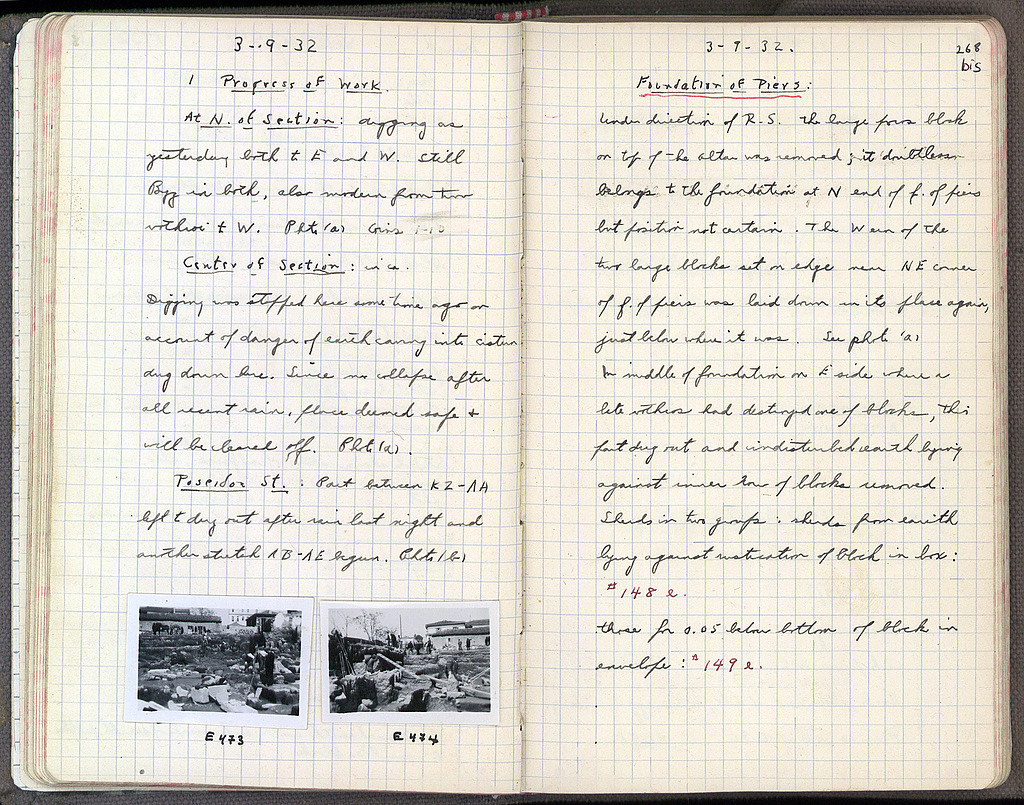 3-9-32
1 Progress of Work.
At N. of Section: digging as
yesterday both to E and W. Still
Byz in both, also modern from two
vothroi to W. Photo (a) Coins 1-10
Center of Section: in ca.
Digging was stopped here some time ago on
account of danger of earth caving into cistern
dug down here. Since no collapse after
all recent rain, place deemed safe +
will be cleared off. Photo (a).
Poseidon St.: Part between ΚΖ-ΛΗ
left to dry out after rain last night and
another stretch ΛΒ-ΛΕ begun. Photo (b)
E473
E474
3-9-32.
268
bis
Foundation of Piers:
Under direction of R.S. the large poros block
on top of the altar was removed; it doubtless
belongs to the foundation at N end of f. of piers
but position not certain. The W one of the
two large blocks set on edge near NE corner
of f. of piers was laid down in its place again,
just below where it was. See photo (a)
In middle of foundation on E side where a
late vothros had destroyed one of blocks, this
part dug out and undisturbed earth lying
against inner row of blocks removed.
Sherds in two groups: sherds from earth
lying against rustication of block in box:
#148 e.
those for 0.05 below bottom of block in
envelope: #149 e.